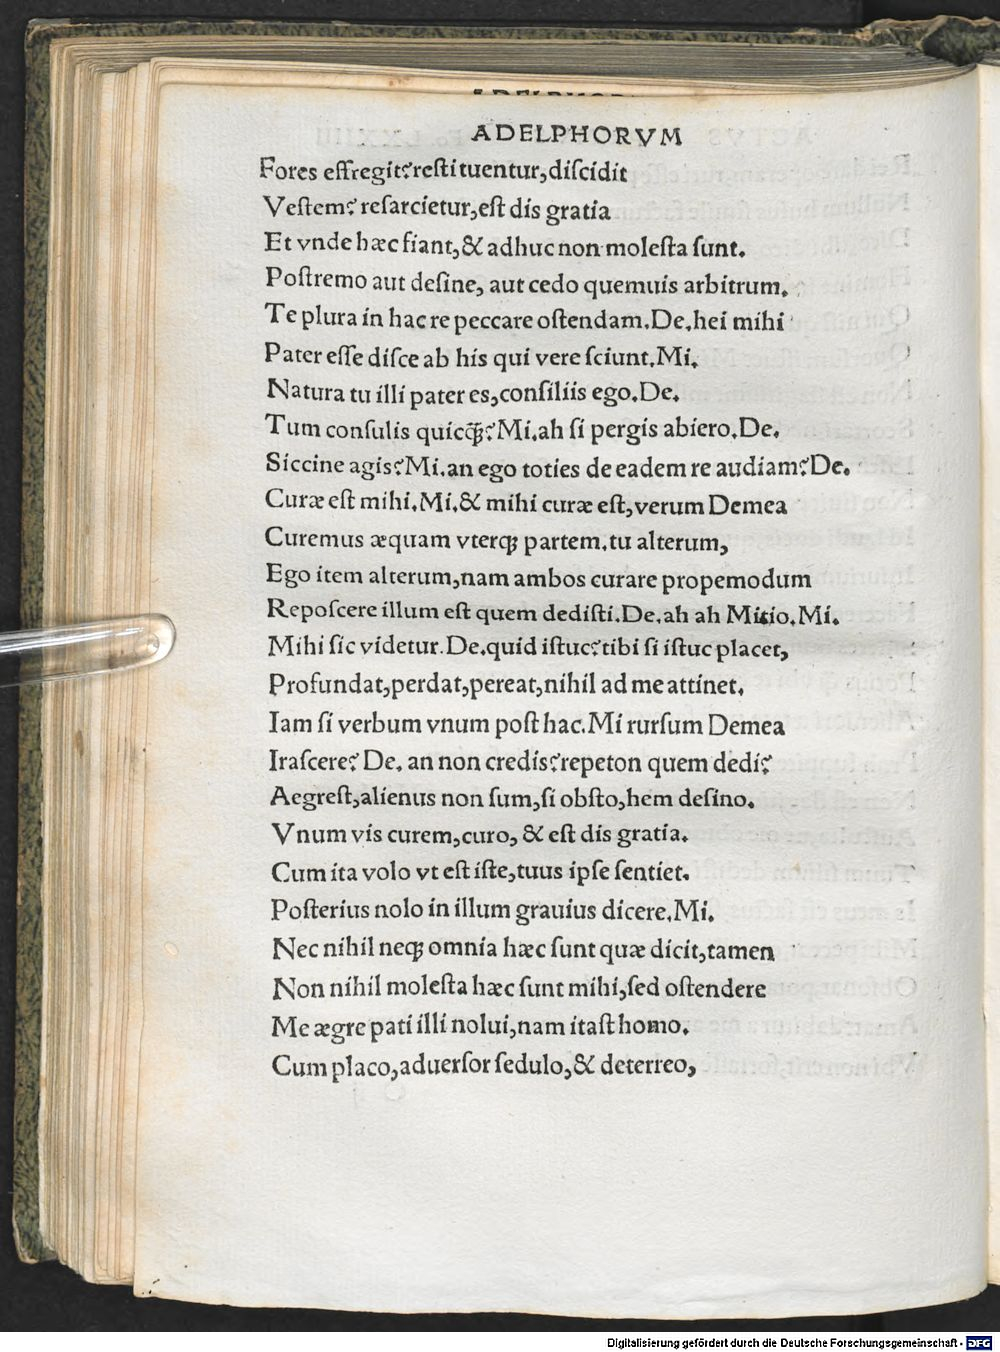 ADELPHORVM
Fores effregit?reſtituentur,diſcidit
Veſtem? reſarcietur,eſt dis gratia
Et vnde hæc fiant,& adhuc non moleſta ſunt.
Poſtremo aut deſine, aut cedo quemuis arbitrum.
Te plura in hac re peccare oſtendam.De.hei mihi
Pater eſſe diſce ab his qui vere ſciunt.Mi.
Natura tu illi pater es,conſiliis ego.De.
Tum conſulis quicq̃?Mi.ah ſi pergis abiero.De.
Siccine agis?Mi.an ego toties de eadem re audiam?De.
Curæ eſt mihi.Mi.& mihi curæ eſt,verum Demea
Curemus æquam vterq; partem.tu alterum,
Ego item alterum,nam ambos curare propemodum
Repoſcere illum eſt quem dediſti.De.ah ah Mitio.Mi.
Mihi ſic videtur.De.quid iſtuc?tibi ſi iſtuc placet,
Profundat,perdat,pereat,nihil ad me attinet.
Iam ſi verbum vnum poſt hac.Mi rurſum Demea
Iraſcere? De. an non credis?repeton quem dedi?
Aegreſt,alienus non ſum,ſi obſto,hem deſino.
Vnum vis curem,curo, & eſt dis gratia.
Cum ita volo vt eſt iſte,tuus ipſe ſentiet.
Poſterius nolo in illum grauius dicere.Mi.
Nec nihil neq; omnia hæc ſunt quæ dicit,tamen
Non nihil moleſta hæc ſunt mihi,ſed oſtendere
Me ægre pati illi nolui,nam itaſt homo.
Cum placo,aduerſor ſedulo,& deterreo,
Digitalisierung gefördert durch die Deutsche Forschungsgemeinschaft - DFG